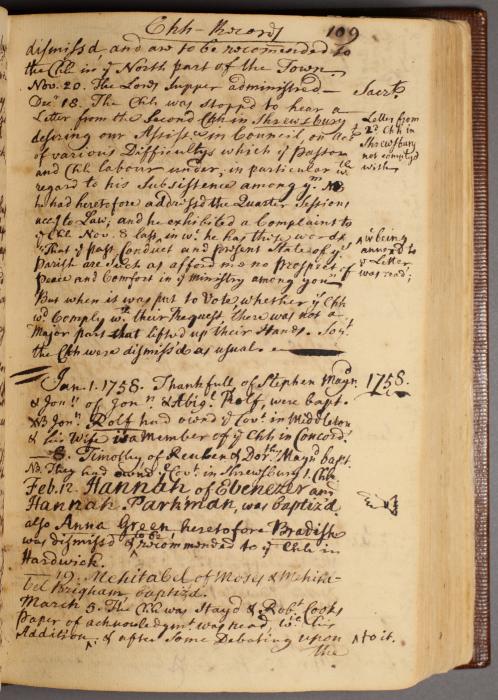 Chh-Records 109
dismiss'd and are to be recomended to
the Chh in ye North part of the Town
Nov. 20. The Lords Supper administred — Sacrt.
Decr 18. The Chh was stopped to hear a
Letter from the Second Chh in Shrewsbury
desiring our Assistce in Council, on Acct
of various Difficultys which ye Pastor
and Chh labour under, in particular wth
regard to his Subsistence among ym. NB
he had heretofore address'd the Quarter Sessions
accg to Law; and he exhibited a Complaint to
ye Chh Nov. 8 last, in wc he has these words
"That ye past Conduct and present State of ye
Parish are such as afford me no prospect of
Peace and Comfort in ye Ministry among you"
But when it was put to Vote, whether ye Chh
wd Comply wth their Request, there was not a
Major part that lifted up their Hands. So yt
the Chh were dismiss'd as usual.
Letter from
2d Chh in
Shrewsbury
not complyd
with
^ wc being
annex'd to
ye Letter
was read;
Jan. 1. 1758. Thankfull of Stephen Mayn. 1758.
& Jonn of Jonn & Abigl Rolf, were bapt.
NB Jonn Rolf had ownd ye Covt in Middleton
& his Wife is a Member of ye Chh in Concord.
— 8. Timothy of Reuben & Doroth. Maynd bapt.
NB. They had owned ye Covt in Shrewsbury 1. Chh.
Feb. 12. Hannah of Ebenezer and
Hannah Parkman, was baptiz'd.
also Anna Green, heretofore Bradish
was dismissed & to be recommended to ye Chh in
Hardwick.
— 19. Mehitabel of Moses & Mehita-
bel Brigham, baptiz'd.
March 5. The Chh was Stay'd & Robt Cooks
paper of acknowledgmt was read, with his
Addition ^, & after some Debating upon ^ to it.
the